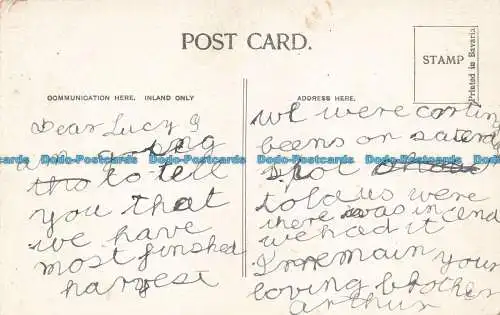 POST CARD.
STAMP
Printed in Bavaria
COMMUNICATION HERE. INLAND ONLY
ADDRESS HERE.
Dear Lucy I
to tell
you that
we have
most finshed
harvest
we were carting
beens on
told us were
there was in and
we had it
I remain your
loving brother
arthur
Dodo-Postcards Dodo-Postcards Dodo-Postcards Dodo-Postcards Dodo-Postcards